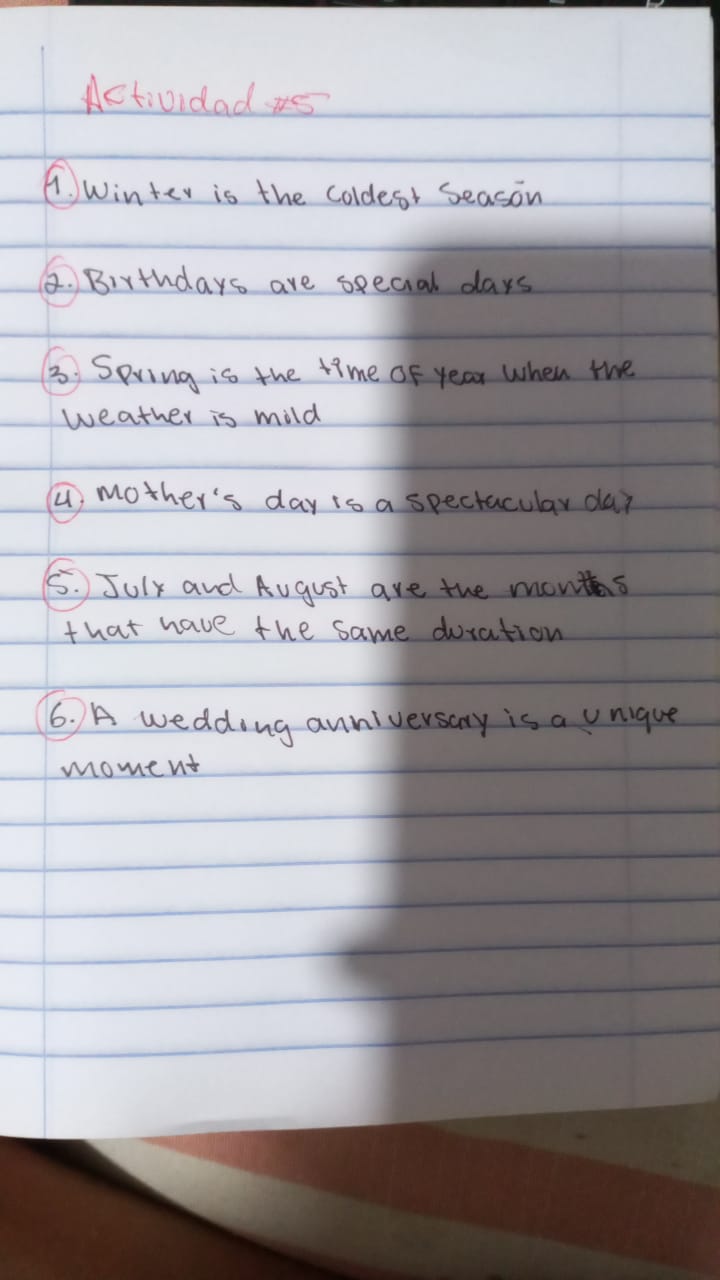 Actividad #5
1. Winter is the coldest Season
2. Birthdays are special days
3. Spring is the time of year when the
weather is mild
4. Mother's day is a spectacular day
5. July and August are the months
that have the same duration
6. A wedding anniversary is a unique
moment